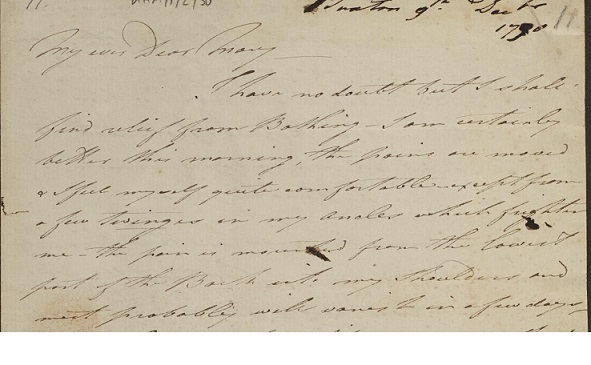 11.
HAM/1/2/30
Buxton 9th Decbr
11
1790
My ever Dear Mary
I have no doubt but I shall
find relief from Bathing - I am certainly
better this morning, the pains are moved
& I feel myself quite comfortable except from
a few twinges in my ancles which frighten
me - the pain is mounted from the lowest
part of the Back into my shoulders and
most probably will vanish in a few days